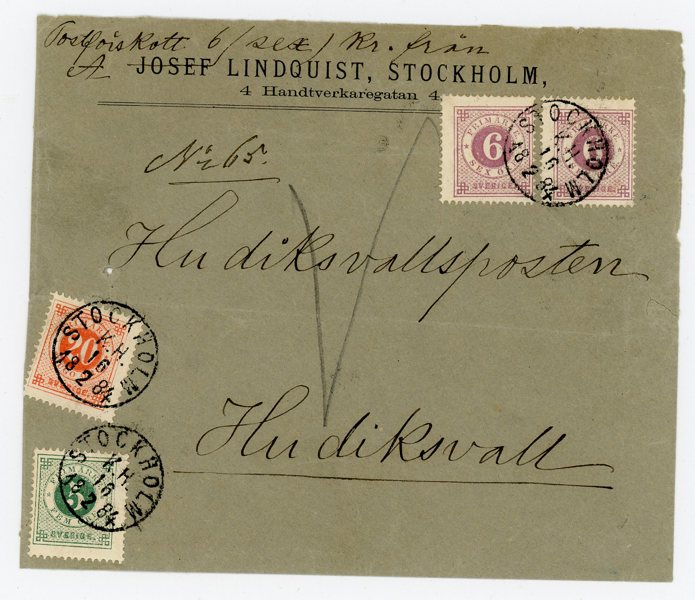 Postförskott 6 /sex/ kr. från
A JOSEF LINDQUIST, STOCKHOLM,
4 Handtverkaregatan 4,
No 65.
FRIMÄRKE
6
SEX Ö
SVERIGE.
6
SVERIGE.
STOCKHOLM
K.H.
16
18 2 84
Hudiksvallsposten
20
STOCKHOLM
K.H.
16
18 2 84
Hudiksvall
FRIMÄRKE
5
FEM
SVERIGE.
STOCKHOLM
K.H.
16
18 2 84